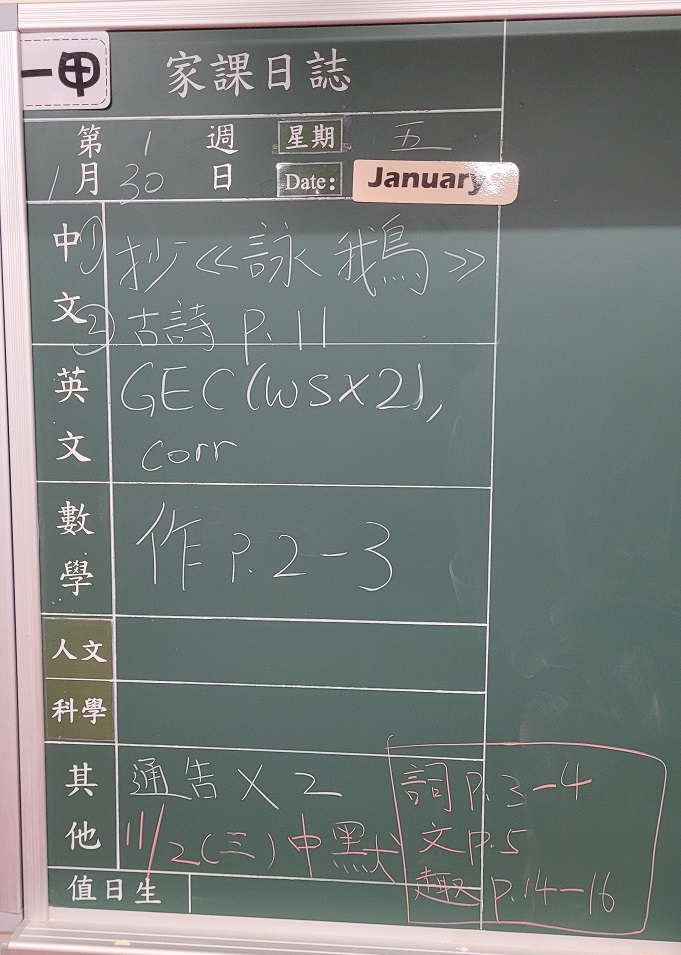 一甲
家課日誌
第 1 週 星期 五
1 月 30 日 Date: January
中文 ① 抄《詠鵝》
② 古詩 p.11
英文 GEC (WSX2),
corr
數學 作 P.2-3
人文
科學
其他 通告 X 2
11/2(三) 中默
詞 p.3-4
文 p.5
趣 p.14-16
值日生